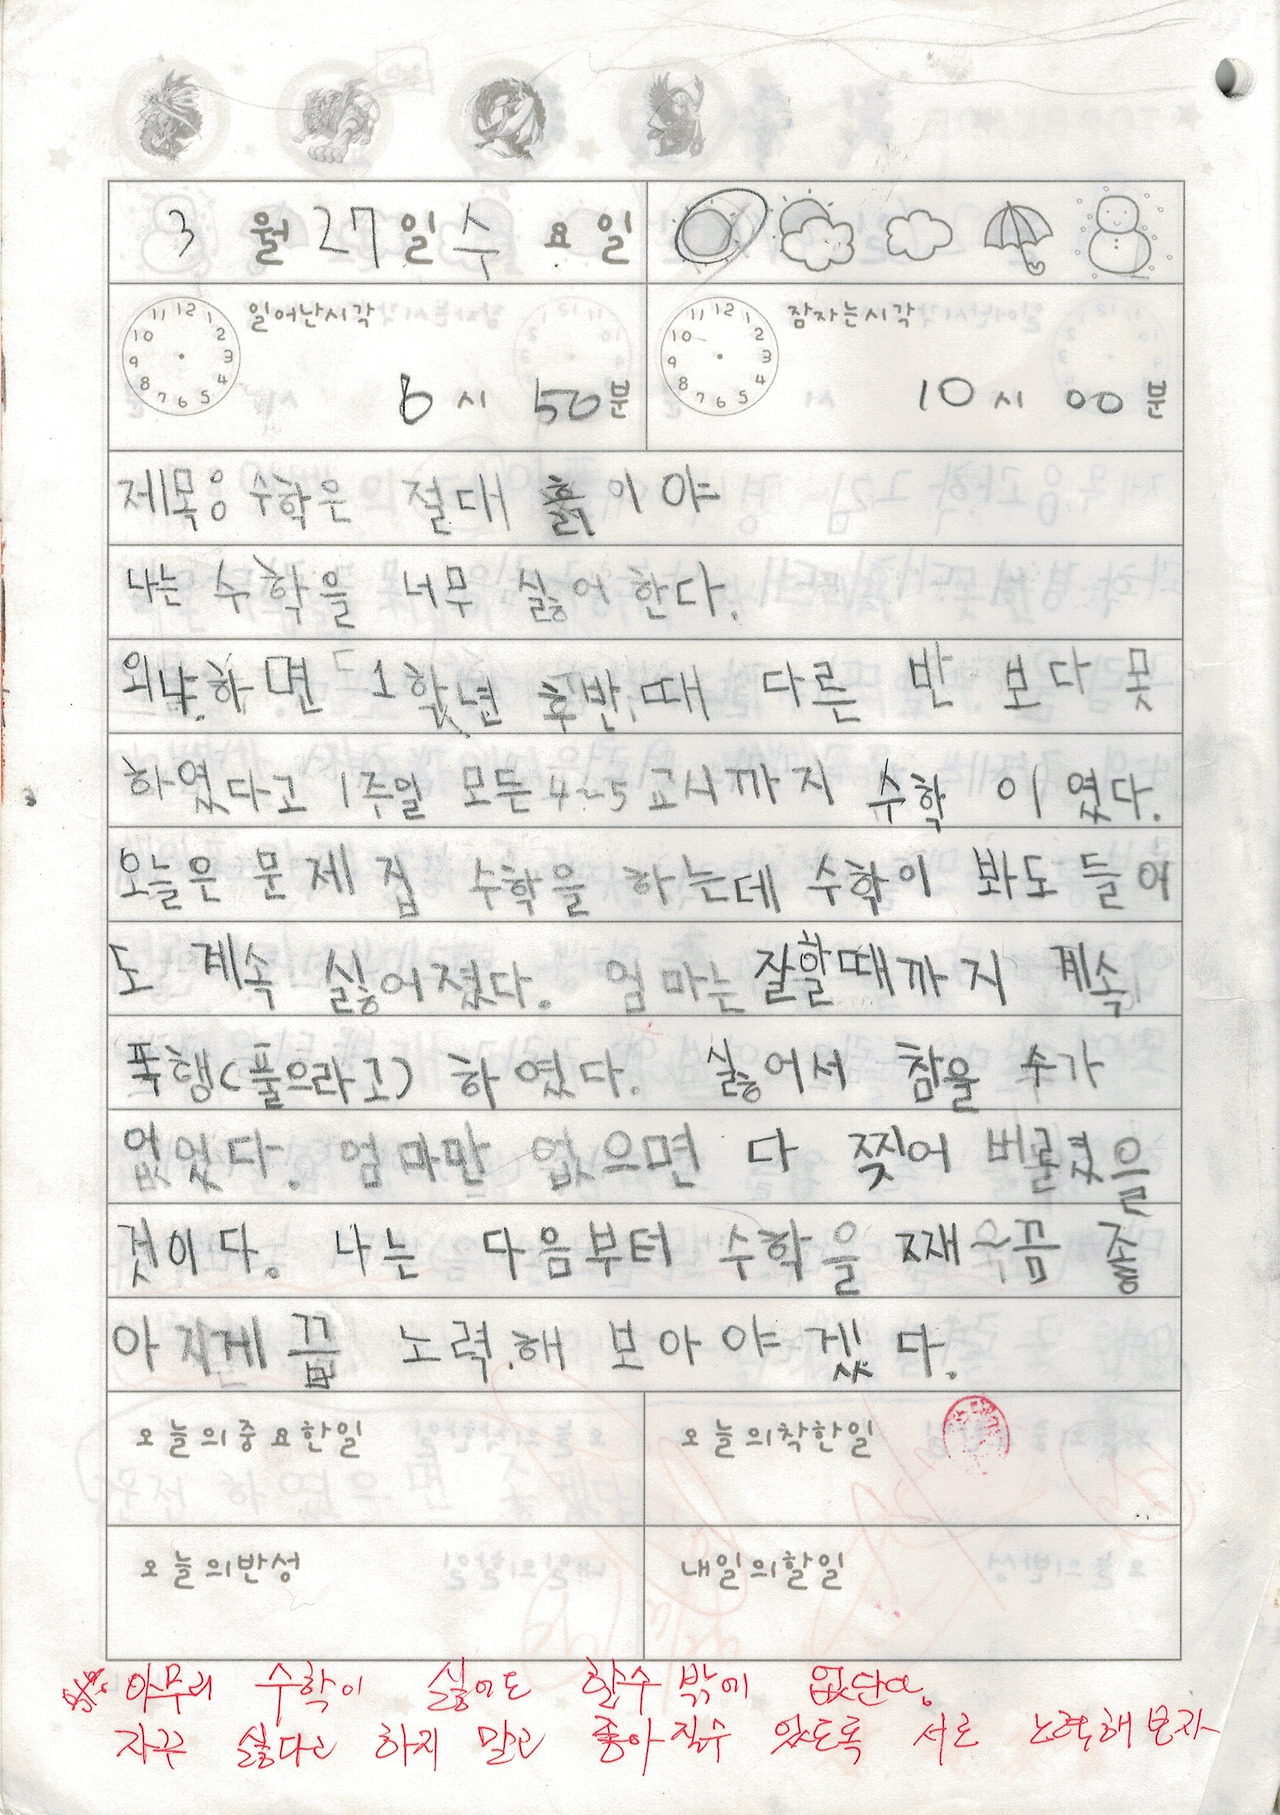 3 월 27 일 수 요 일
일어난시각
6 시 50 분
잠자는시각
10 시 00 분
제목: 수학은 절대 흙이야
나는 수학을 너무 싫어 한다.
외냐하면 1학년 후반때 다른 반 보다 못
하였다고 1주일 모든 4~5 교시까지 수학 이 였다.
오늘은 문제 집 수학을 하는데 수학이 봐도 들어
도 계속 싫어졌다. 엄마는 잘할때까지 계속
폭행(풀으라고) 하 였다. 싫어서 참을 수가
없었다. 엄마만 없으면 다 찢어 버렸을
것이다. 나는 다음부터 수학을 째~끔 좋
아지게끔 노력해 보아야겠다.
오늘의중요한일
오늘의착한일
오늘의반성
내일의할일
아무리 수학이 싫어도 할수밖에 없단다.
자꾸 싫다고 하지 말고 좋아질수 있도록 서로 노력해보자